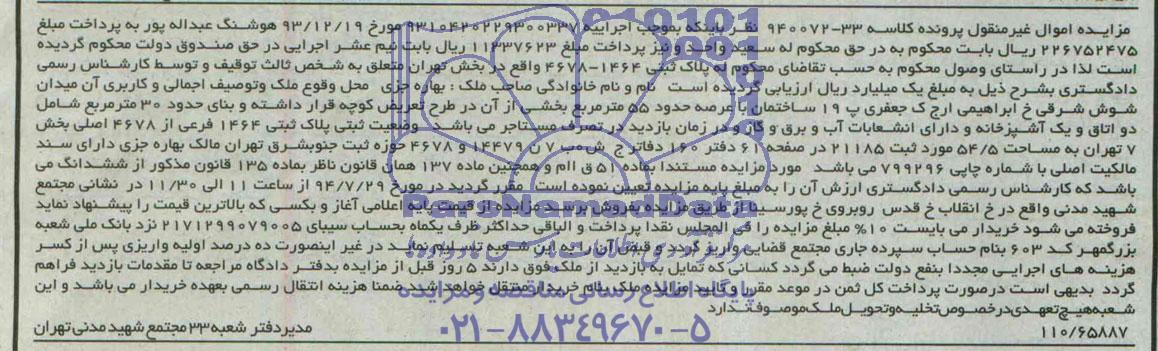 مزایده اموال غیرمنقول پرونده کلاسه ۳۳-۹۴۰۰۷۲ نظر باینکه بموجب اجراییه ۹۳۱۰۴۲۰۲۲۹۳۰۰۳۳۷ مورخ ۹۳/۱۲/۱۹ هوشنگ عبداله پور به پرداخت مبلغ
۲۲۶۷۵۲۴۷۵ ریال بابت محکوم به در حق محکوم له سعید واحد و نیز پرداخت مبلغ ۱۱۳۳۷۶۲۳ ریال بابت نیم عشر اجرایی در حق صندوق دولت محکوم گردیده
است لذا در راستای وصول محکوم به حسب تقاضای محکوم له پلاک ثبتی ۱۴۶۴-۴۶۷۸ واقع در بخش تهران متعلق به شخص ثالث توقیف و توسط کارشناس رسمی
دادگستری بشرح ذیل به مبلغ یک میلیارد ریال ارزیابی گردیده است نام و نام خانوادگی صاحب ملک : بهاره جزی محل وقوع ملک وتوصیف اجمالی و کاربری آن میدان
شوش شرقی خ ابراهیمی ارج ک جعفری پ ۱۹ ساختمان با عرصه حدود ۵۵ مترمربع بخشی از آن در طرح تعریض کوچه قرار داشته و بنای حدود ۳۰ مترمربع شامل
دو اتاق و یک آشپزخانه و دارای انشعابات آب و برق و گاز و در زمان بازدید در تصرف مستاجر می باشد وضعیت ثبتی پلاک ثبتی ۱۴۶۴ فرعی از ۴۶۷۸ اصلی بخش
۷ تهران به مساحت ۵۴/۵ مورد ثبت ۲۱۱۸۵ در صفحه ۶۱ دفتر ۱۶۰ دفاتر ج ش ب ۷ ن ۱۴۴۷۹ و ۴۶۷۸ حوزه ثبت جنوبشرق تهران مالک بهاره جزی دارای سند
مالکیت اصلی با شماره چاپی ۷۹۹۲۹۶ می باشد مورد مزایده مستندا بماده ۵۱ ق اام و همچنین ماده ۱۳۷ همان قانون ناظر بماده ۱۳۵ قانون مذکور از ششدانگ می
باشد که کارشناس رسمی دادگستری ارزش آن را به مبلغ پایه مزایده تعیین نموده است مقرر گردید در مورخ ۹۴/۷/۲۹ از ساعت ۱۱ الی ۱۱/۳۰ در نشانی مجتمع
شهید مدنی واقع در خ انقلاب خ قدس روبروی خ پورسینا از طریق مزایده بفروش برسد مزایده از قیمت پایه اعلامی آغاز و بکسی که بالاترین قیمت را پیشنهاد نماید
فروخته می شود خریدار می بایست ۱۰% مبلغ مزایده را فی المجلس نقدا پرداخت و الباقی حداکثر ظرف یکماه بحساب سیبای ۲۱۷۱۲۹۹۰۷۹۰۰۵ نزد بانک ملی شعبه
بزرگمهر کد ۶۰۳ بنام حساب سپرده جاری مجتمع قضایی واریز گردد و قبض آن را به این شعبه تسلیم نماید در غیر اینصورت ده درصد اولیه واریزی پس از کسر
هزینه های اجرایی مجددا بنفع دولت ضبط می گردد کسانی که تمایل به بازدید از ملک فوق دارند ۵ روز قبل از مزایده بدفتر دادگاه مراجعه تا مقدمات بازدید فراهم
گردد بدیهی است درصورت پرداخت کل ثمن در موعد مقرر و تایید مزایده ملک بنام خریدار منتقل خواهد شد ضمنا هزینه انتقال رسمی بعهده خریدار می باشد و این
شعبه هیچ تعهدی در خصوص تخلیه وتحویل ملک موصوف ندارد
۱۱۰/۶۵۸۸۷ مدیردفتر شعبه ۳۳ مجتمع شهید مدنی تهران
ParsNamadData
پایگاه اطلاع رسانی مناقصه و مزایده
۰۲۱-۸۸۳۴۹۶۷۰-۵